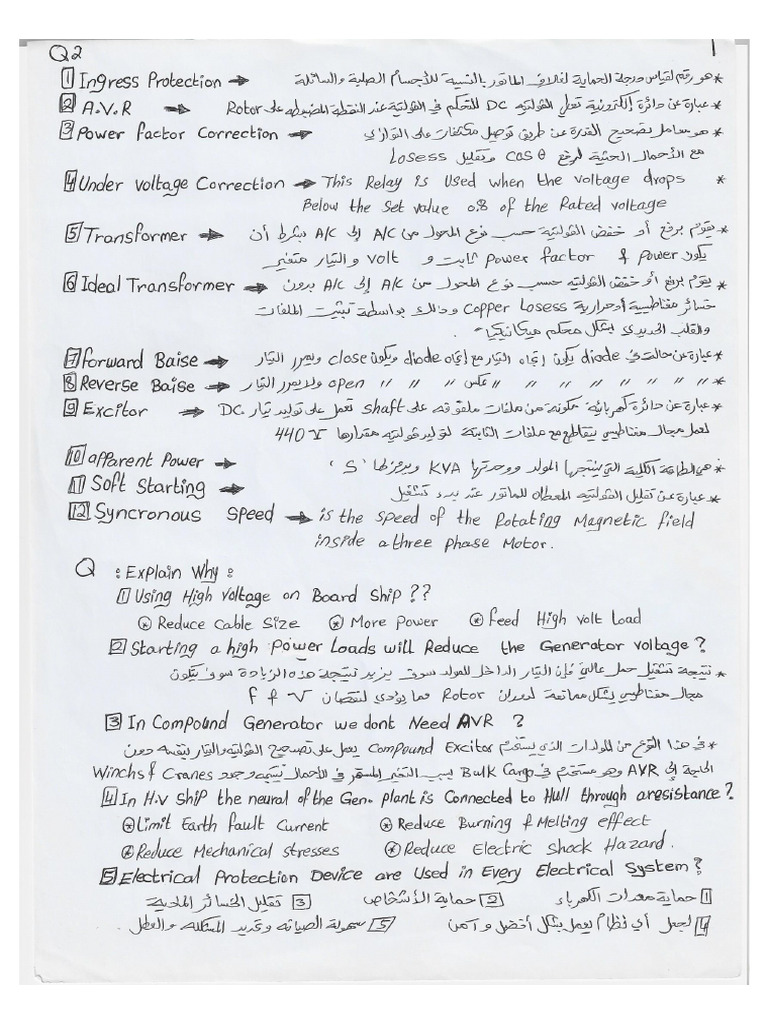 Q2
1
1 Ingress Protection → * هو رقم لقياس درجة الحماية لغلاف الماتور بالنسبة للأجسام الصلبة والسائلة
2 A.V.R → عبارة عن دائرة إلكترونية تعطي الفولتية DC للتحكم في الفولتية عند النقطة المضبوطه على Rotor
3 Power factor Correction → * هو معامل تصحيح القدرة عن طريق توصيل مكثفات على التوازي
مع الأحمال الحثية لرفع cos θ وتقليل Losess
4 Under voltage Correction → This Relay is Used when the voltage drops *
Below the Set value 0.8 of the Rated voltage
5 Transformer → * يقوم برفع أو خفض الفولتية حسب نوع المحول من A/C إلى A/C بشرط أن
يكون Power & Power factor ثابت و Volt والتيار متغير
6 Ideal Transformer → * يقوم برفع أو خفض الفولتيه حسب نوع المحول من A/C إلى A/C بدون
خسائر مغناطيسية أو حرارية Copper Losess وذالك بواسطة تثبيت الملفات
والقلب الحديدي بشكل محكم ميكانيكيا
7 Forward Baise → * عبارة عن حالة في diode يكون إتجاه التيار مع إتجاه diode ويكون close ويمرر التيار
8 Reverse Baise → * " " " " " " " عكس " " open ولا يمرر التيار
9 Excitor → * عبارة عن دائرة كهربائية مكونة من ملفات ملفوفه على shaft تعمل على توليد تيار DC
لعمل مجال مغناطيسي يتقاطع مع ملفات الثابتة لتوليد فولتيه مقدارها 440 V
10 apparent Power → * هي الطاقة الكلية التي ينتجها المولد ووحدتها KVA ويرمز لها 'S'
11 Soft Starting → * عبارة عن تقليل الفولتيه المعطاه للماتور عند بدء تشغيل
12 Syncronous Speed → is the speed of the Rotating Magnetic field
inside a three phase Motor.
Q : Explain Why :
1 Using High Voltage on Board Ship ??
* Reduce Cable Size * More Power * Feed High volt Load
2 Starting a high Power Loads will Reduce the Generator voltage ?
* نتيجة تشغيل حمل عالي فإن التيار الداخل للمولد سوف يزيد نتيجة هذه الزيادة سوف يتكون
مجال مغناطيسي يشكل ممانعة لدوران Rotor مما يؤدي لنقصان V & f
3 In Compound Generator we dont Need AVR ?
* في هذا النوع من المولدات الذي يستخدم Compound Excitor يعمل على تصحيح الفولتيه والتيار بنفسه دون
الحاجة إلى AVR وهو مستخدم في Bulk Cargo بسبب التغير المستمر في الأحمال نتيجه وجود Winchs & Cranes
4 In H.V Ship the neural of the Gen. plant is Connected to Hull through aresistance ?
* Limit Earth fault Current * Reduce Burning & Melting effect
* Reduce Mechanical stresses * Reduce Electric Shock Hazard.
5 Electrical Protection Device are Used in Every Electrical System ?
1 حماية معدات الكهرباء 2 حماية الأشخاص 3 تقليل الخسائر المادية
4 لجعل أي نظام يعمل بشكل أفضل و آمن 5 سهولة الصيانه وتحديد المشكله والعطل.